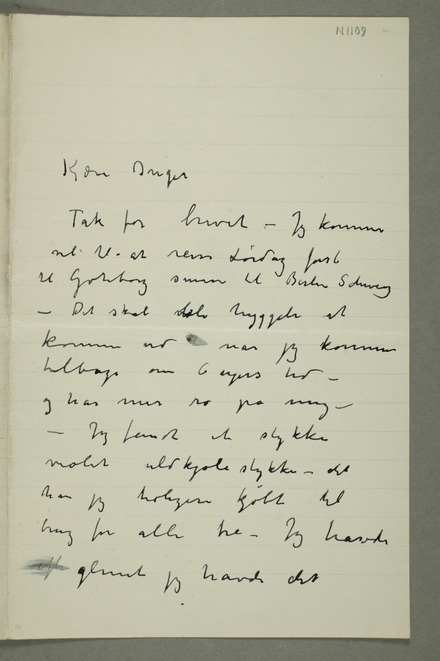 N1109
Kjære Inger
Tak for brevet – Jeg kommer
vel til at reise Lördag först
til Göteborg senere til Berlin Schweig
– Det skal bli hyggeli at
komme ud når jeg kommer
tilbage om 6 ugers tid –
og har mer ro på mig –
– Jeg fandt et stykke
violet uldkjole stykke – det
har jeg tidligere kjöbt til
brug for alle tre – Jeg havde
glemt jeg havde det